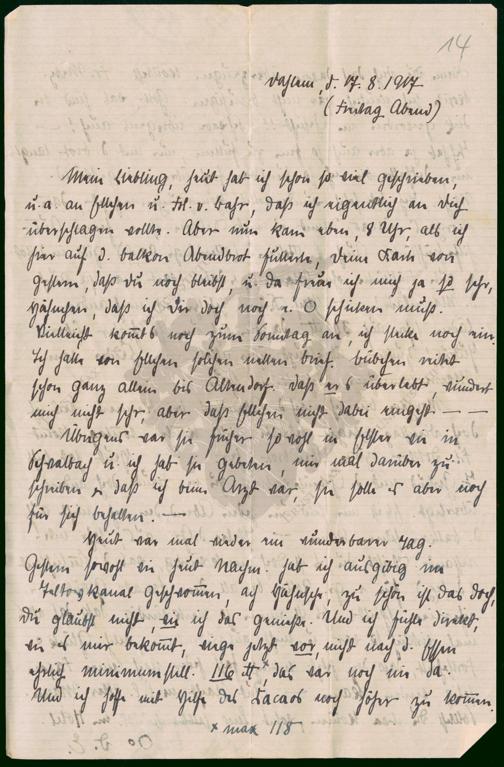 14
Dahlem, d. 17.8.1917
(Freitag Abend)
Mein Liebling, heut hab ich schon so viel geschrieben,
u.a. an Ellchen u. Frl. v. Bahr, daß ich eigentlich an Dich
überschlagen wollte. Aber nun kam eben, 8 Uhr, als ich
hier auf d. Balkon Abendbrot futterte, Deine Karte von
gestern, daß Du noch bleibst, u. da freue ich mich ja so sehr,
Hähnchen, daß ich Dir doch noch e. O schicken muß.
Vielleicht kommts noch zum Sonntag an, ich stecke noch ein.
Ich hatte von Ellchen solchen netten Brief. Bübchen reitet
schon ganz allein bis Altendorf. Daß er es überlebt, wundert
mich nicht sehr, aber daß Ellchen nicht dabei eingeht. — —
Übrigens war sie früher sowohl in Elster wie in
Schwalbach u. ich hab sie gebeten, mir mal darüber zu
schreiben, daß ich beim Arzt war, sie solle es aber noch
für sich behalten. —
Heut war mal wieder ein wunderbarer Tag.
Gestern sowohl wie heut Nachm. hab ich ausgiebig im
Teltowkanal geschwommen, ach Hähnche, zu schön ist das doch,
Du glaubst nicht wie ich das genieße. Und ich fühle direkt,
wie es mir bekommt, wiege jetzt vor, nicht nach d. Essen
ehrlich minimumstell. 116 ℔ x, das war noch nie da.
Und ich hoffe mit Hilfe des Cacaos noch höher zu kommen.
x max 118